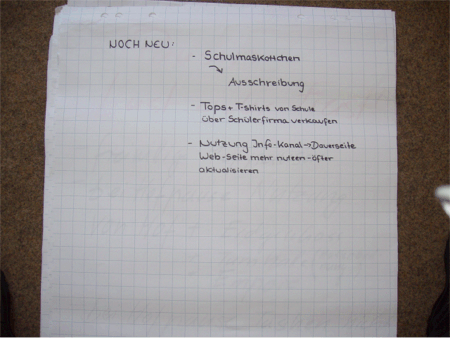 NOCH NEU:
- Schulmaskottchen
↳ Ausschreibung
- Tops + T-shirts von Schule
über Schülerfirma verkaufen
- Nutzung Info-Kanal → Dauerseite
Web-Seite mehr nutzen - öfter
aktualisieren